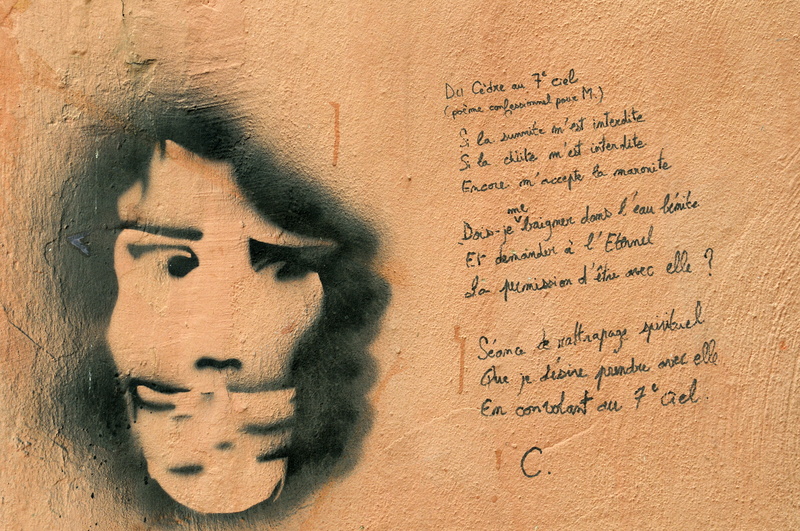 Du Cèdre au 7e ciel
(poème confessionnel pour M.)
Si la sunnite m'est interdite
Si la chiite m'est interdite
Encore m'accepte la maronite
Dois-je me baigner dans l'eau bénite
Et demander à l'Eternel
La permission d'être avec elle ?
Séance de rattrapage spirituel
Que je désire prendre avec elle
En convolant au 7e ciel.
C.